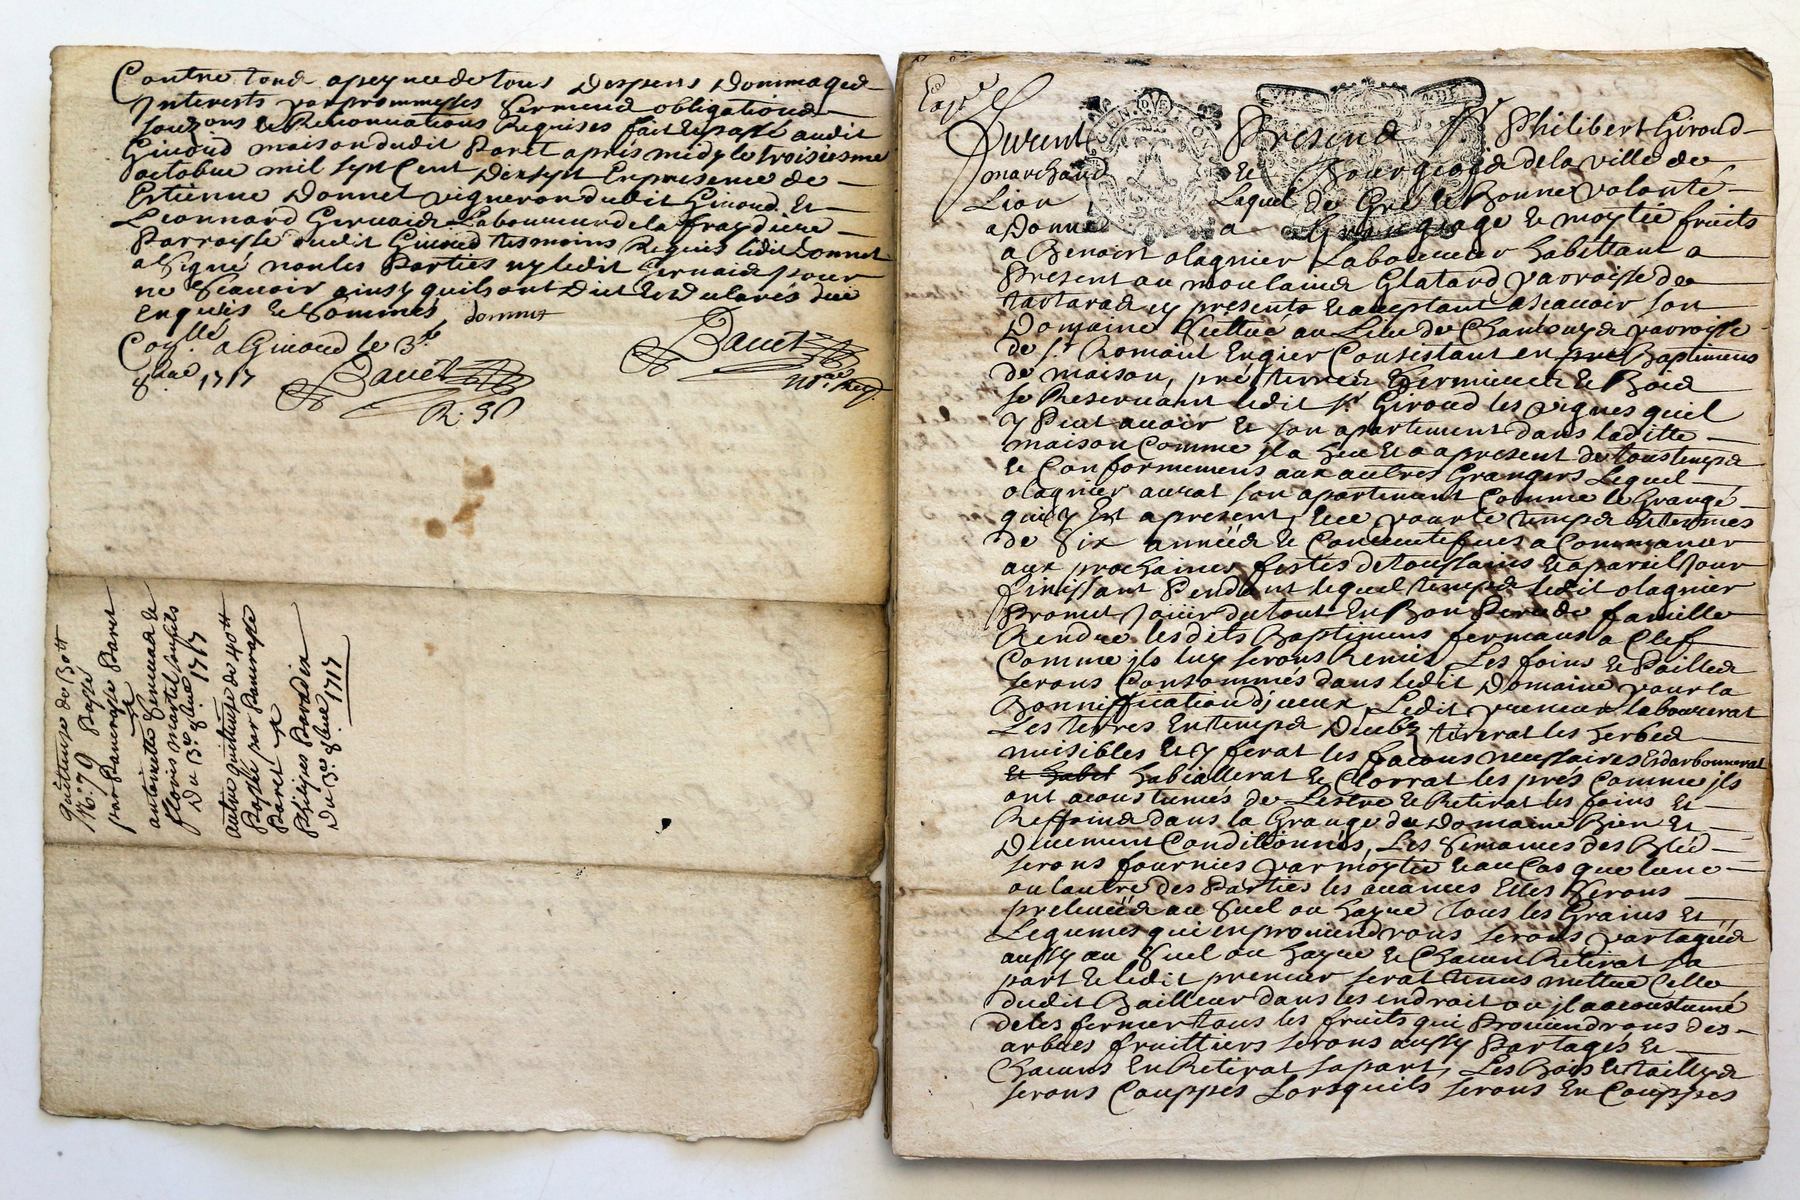 Contre tond a peynede tous despens dommaged
Interests par prommesses serment obligationd
soubzons et Renonciations Requises fait et passé audit
Ginoud maison dudit Paret apres midy le troisiesme
octobre mil sept Cent dix sept En presence de
Estienne Donnet vigneron dudit Ginoud Et
Leonnard Gervaid Laboureur de la fraydiere
Parroysse dudit Ginoud tesmoins Requis ledit Donnet
a signé non les Parties ny ledit Gervaid pour
ne scavoir ainsy quils ont dict et declarés due
enquis et sommés donnet
a Ginoud le 3e
8bre 1717
quittense de 30tt
N.° 79 Passé
par Pancrasse Paret
antoinette Gervaid et
floris martel son fils
Du 3e 8bre 1717
autre quittense de 40tt
Passée par Pancrasse
Paret
Philipes
Du 3e 8bre 1717
Expé
Furent Present Sr Philibert Giroud
marchand et Bourgeois de la ville de
Lion Lequel de Gré et Bonne volonté
a Donné a Grangeage et moytié fruits
a Benoist olagnier Laboureur habittant a
Present au moulaind Glatard parroisse de
tartarad cy present et aceptant a scavoir son
Domaine scittué au Lieu de parroisse
de St Romain Consistant en Baptimens
de maison, prés terres et Boid
se Reservant ledit Sr Giroud les vignes quil
y Peut avoir et son apartement dans laditte
maison Comme il a heu et a apresent de tous tempd
et Conformement aux autres Grangers Lequel
olagnier aurat son apartement Comme le Grangé
qui y Est apresent, et ce pour le tempd et termes
de Six annéed et a Commancer
aux prochaines festes de toussains et a pareil Jour
finissant Pendant lequel tempd ledit olagnier
Promet Jouir du tout En Bon Pere de famille
Rendre lesdits Baptimens fermans a Clef
Comme ils luy serons Remis, Les foins et Pailles
serons Consommés dans ledit Domaine pour la
Bonniffication d'jceux, Ledit preneur labourerat
Les terres En tempd tirerat les herbed
nuisibles et y ferat les facons necessaires Esdarbonnerat
habiallerat et Clorrat les prés Comme ils
ont acoustumés de Lestre et Retirat les foins et
Reffoind dans la Grange du Domaine Bien et
Deuement Conditionnés, Les Semances des Bléd
serons fournies par moytié et au Cas que lune
ou lautre des Parties les avances Elles serons
preleuéed au Suel ou hayre tous les Grains et
Legumes qui en proviendrons serons partagéed
aussy au Suel ou hayre et Chacun Retirat sa
part et ledit premier serat tenus mettre Celle
dudit Bailleur dans les endroit ou il a acoustumé
de les fermer tous les fruits qui Proviendrons des
arbres fruittiers serons aussy Partagés et
Chacuns En Retirat sa part, Les Bois et taillyd
serons Couppés Lorsquils serons En Couppes